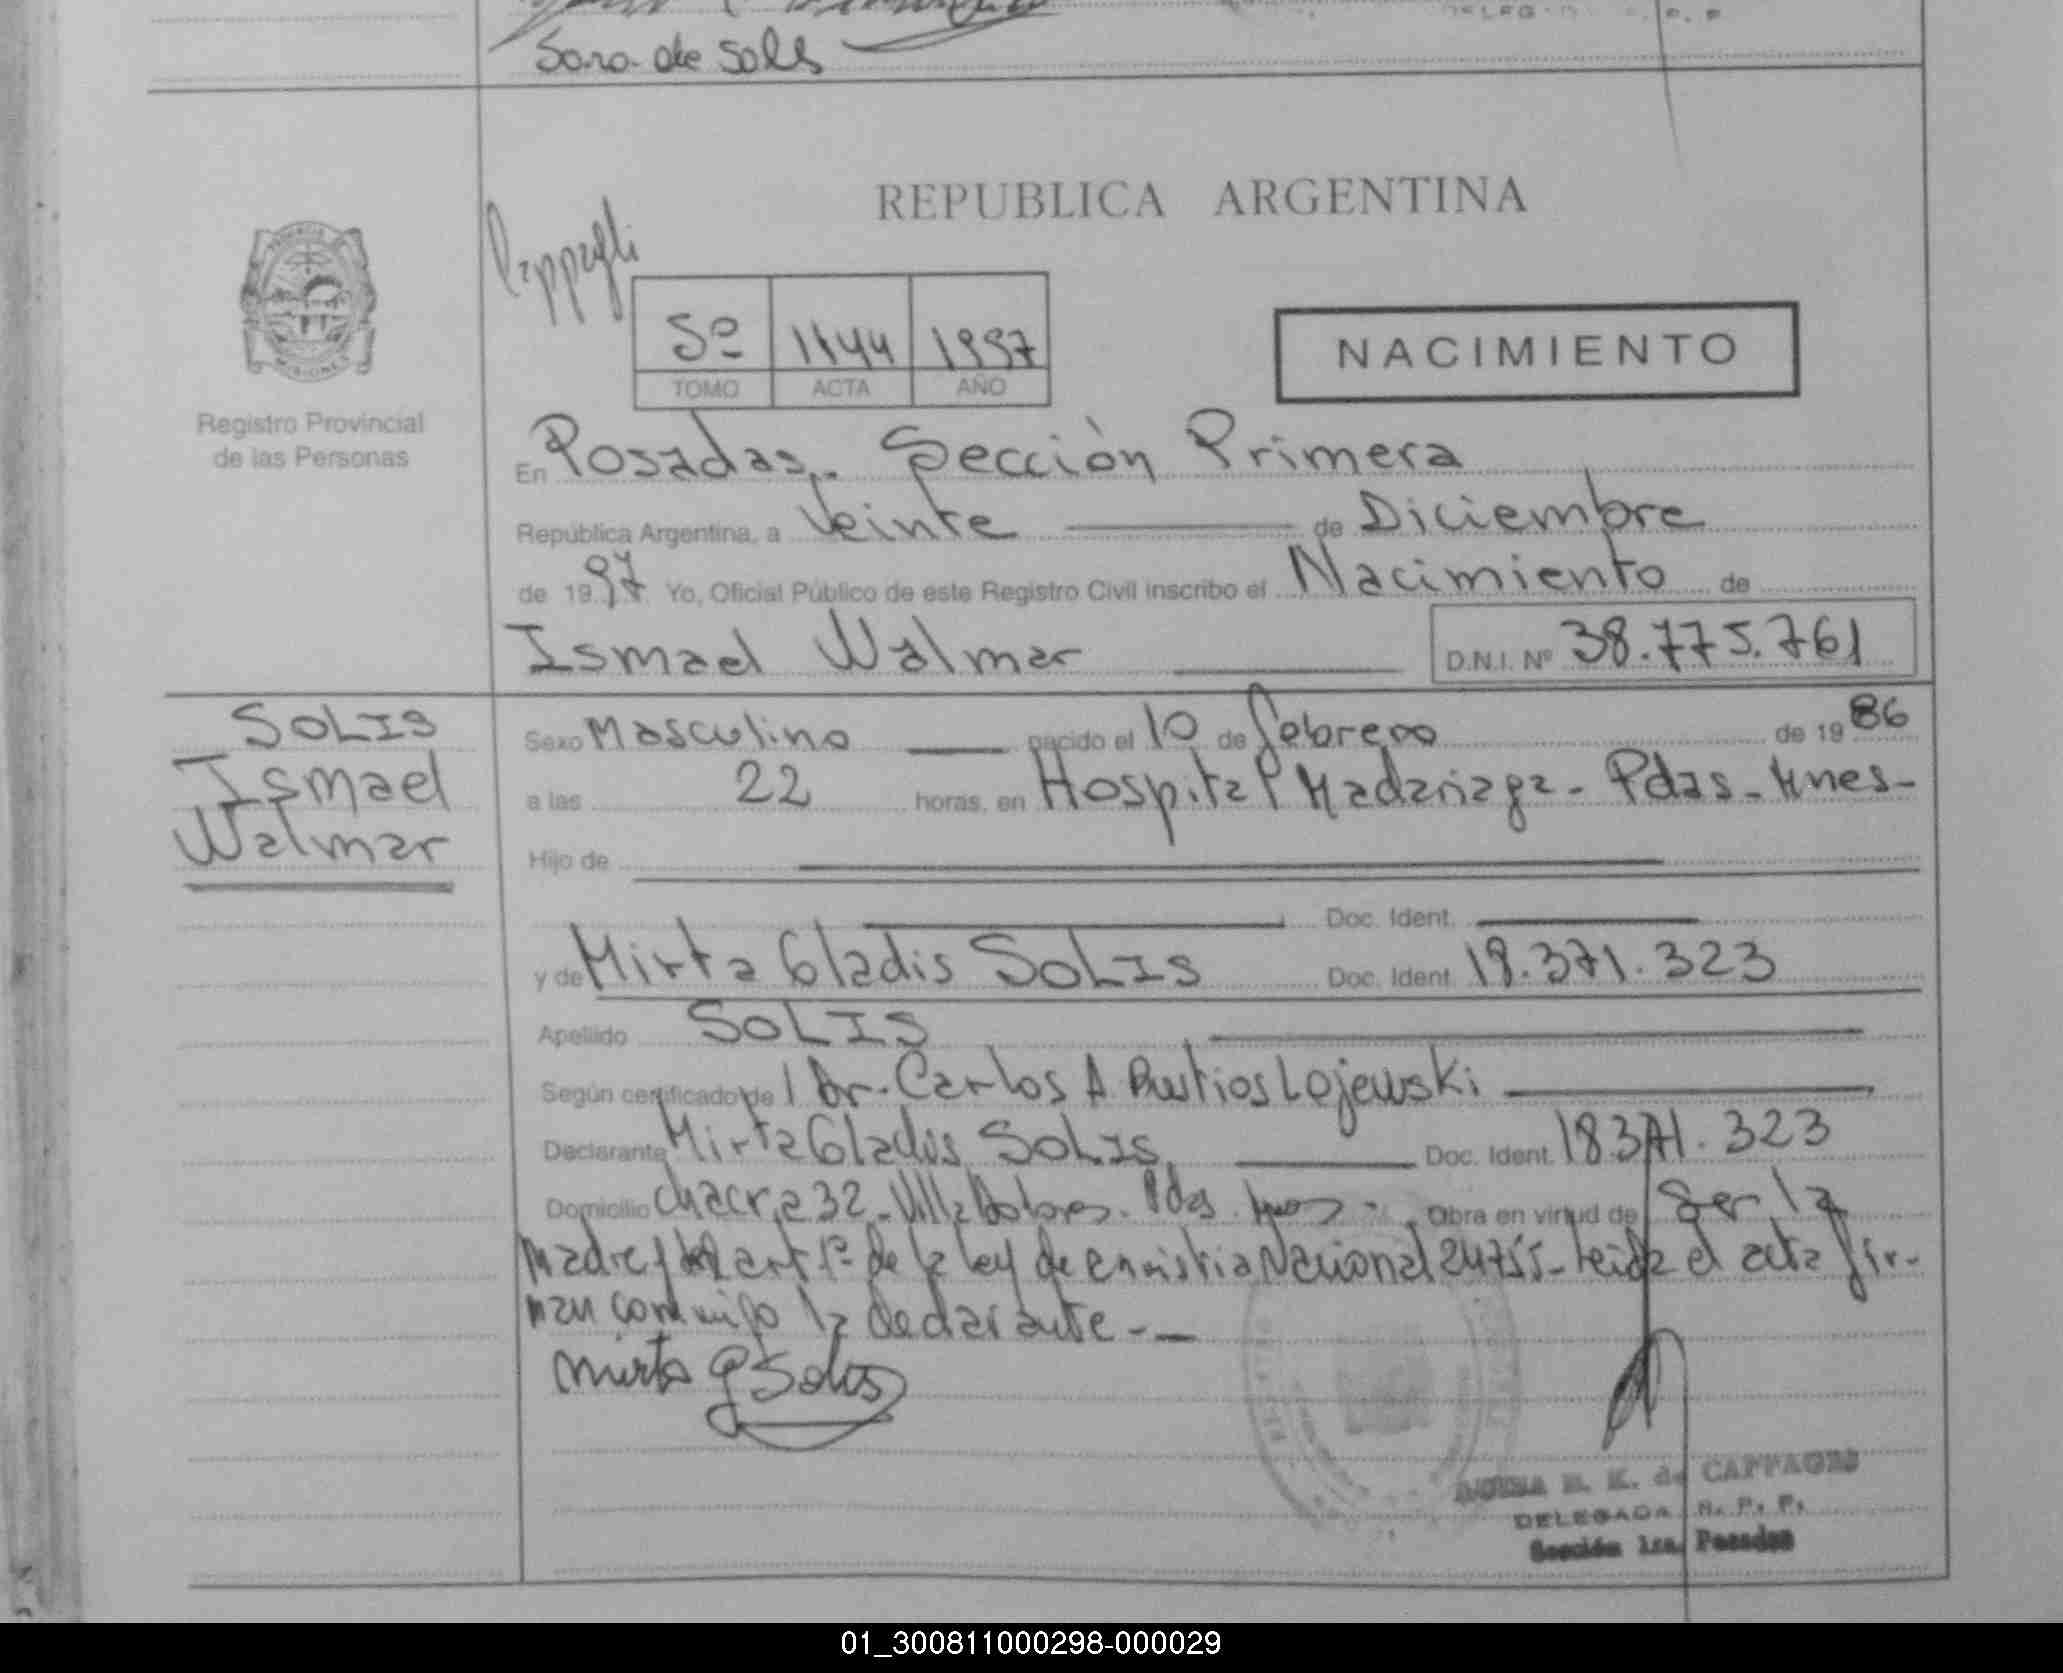 Sara de Solis
REPUBLICA ARGENTINA
PROVINCIA DE
MISIONES
Registro Provincial
de las Personas
5º 1144 1997
TOMO ACTA AÑO
NACIMIENTO
En Posadas. Sección Primera
República Argentina, a Veinte de Diciembre
de 1997 Yo, Oficial Público de este Registro Civil inscribo el Nacimiento de
Ismael Walmar D.N.I. Nº 38.775.761
SOLIS
Ismael
Walmar
Sexo Masculino nacido el 10 de febrero de 1986
a las 22 horas, en Hospital Madariaga - Pdas - Mnes -
Hijo de
Doc. Ident.
y de Mirta Gladis SOLIS Doc. Ident. 18.371.323
Apellido SOLIS
Según certificado de l Dr. Carlos A. Lojewski
Declarante Mirta Gladis SOLIS Doc. Ident. 18371.323
Domicilio Chacra 32 - Villa Dolores - Pdas. Mnes - Obra en virtud de Ser la
madre y art 1º de la Ley de amnistia Nacional 24755 - Leida el acta fir-
man conmigo la declarante - —
Mirta G Solis
B. K. de CAPPAGLI
DELEGADA R. P. P.
Sección 1ra. Posadas
01_300811000298-000029